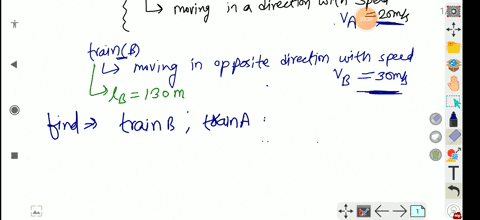 ↳ moving in a direction with speed
V_A = 20m/s
train(B)
↳ moving in opposite direction with speed
V_B = 30m/s
↳ l_B = 130 m
find ⇒ train B ; train A :
1